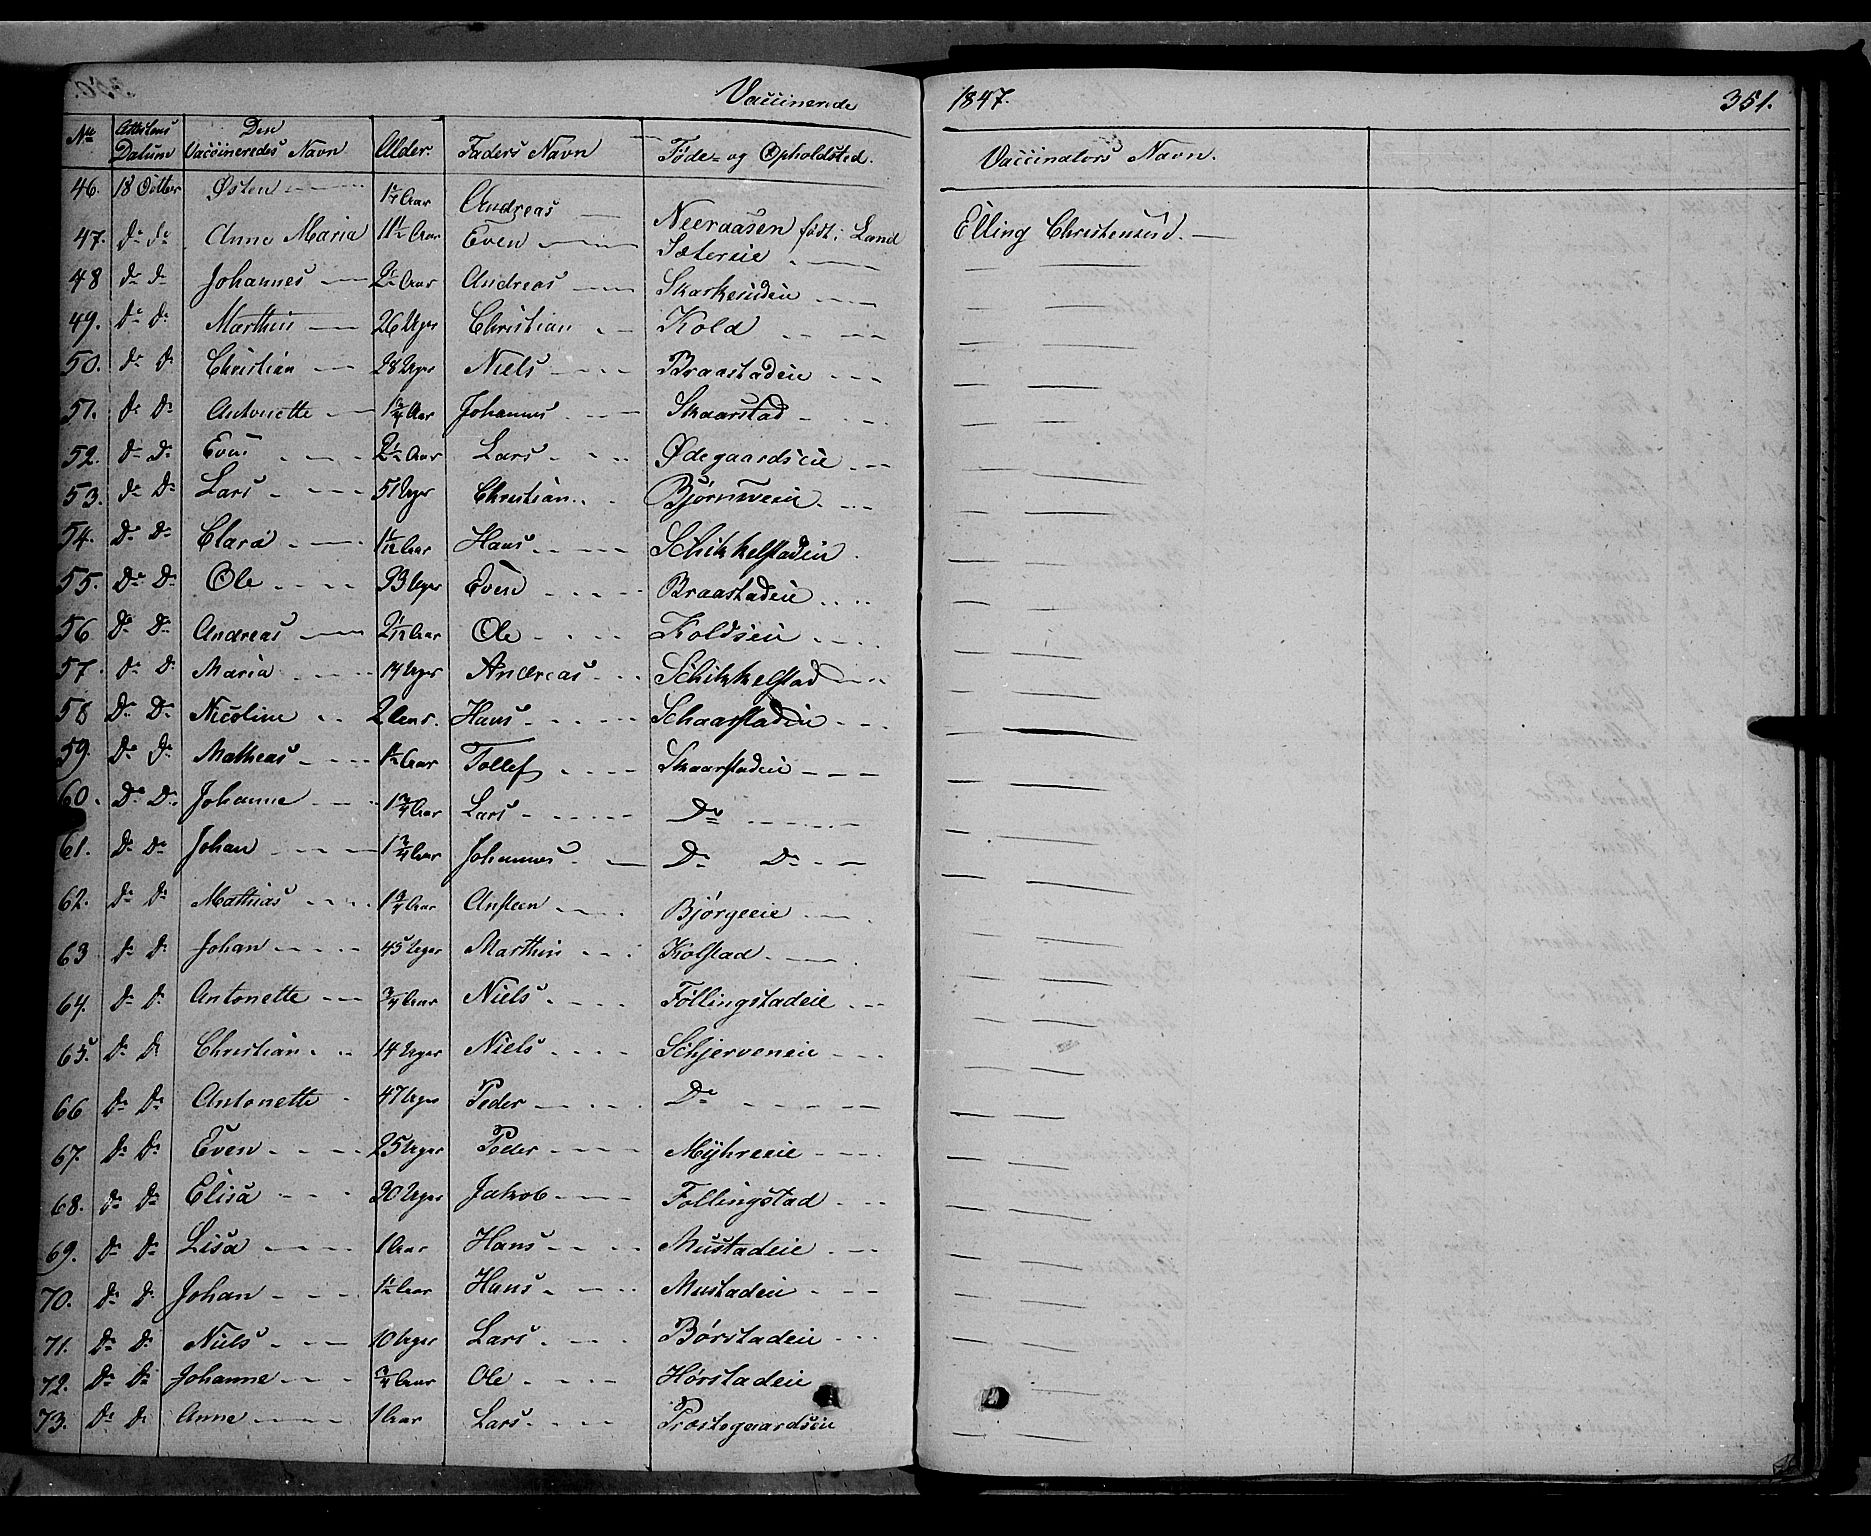 Vaccinerede 1847. 351.
No Attestens Datum Den Vaccineredes Navn Alder. Faders Navn Føde- og Opholdsted. Vaccinators Navn.
46. 18 Octbr Østen Aar Andreas Neeraasen født i Land Elling Christensend.
47. do do Anne Maria 11½ Aar Even Sætereie
48 do do Johannes Aar Andreas Skarkeruden
49. do do Marthin 26 Uger Christian Kold
50. do do Christian 28 Uger Niels Braastadeie
51. do Do Antonette 1¾ Aar Johannes Skaarstad
52. do Do Even 2½ Aar Lars Ødegaardseie
53. do Do Lars 51 Uger Christian Bjørnsveeie
54. Do Do Clara 1 1/12 Aar Hans Schikkelstadeie
55. Do Do Ole 33 Uger Even Braastadeie
56 Do Do Andreas 2 1/12 Aar Ole Koldseie
57. Do Do Maria 14 Uger Andreas Schikkelstad
58 Do Do Nicoline 2 Aar. Hans Schaarstadeie
59. Do Do Matheas 1½ Aar Tollef Skaarstadeie
60. Do Do Johanne 1¾ Aar Lars Do
61. Do Do Johan 1¾ Aar Johannes Do Do
62. Do Do Mathias 1¾ Aar Ansteen Bjørgeeie
63 Do Do Johan 45 Uger Marthin Kolstad
64. Do Do Antonette ¾ Aar Niels Føllingstadeie
65. Do Do Christian 14 Uger Niels Schjerveneie
66 Do Do Antonette 47 Uger Peder Do
67. Do Do Even 25 Uger Peder Mÿhreeie
68. Do Do Elisa 30 Uger Jakob Føllingstad
69. Do Do Lisa 1 Aar Hans Mustadeie
70. Do Do Johan 1½ Aar Hans Mustadeie
71. Do Do Niels 10 Uger Lars Børstadeie
72. Do Do Johanne ¾ Aar Ole Hørstadeie
73. Do Do Anne 1 Aar Lars Præstegaardseie